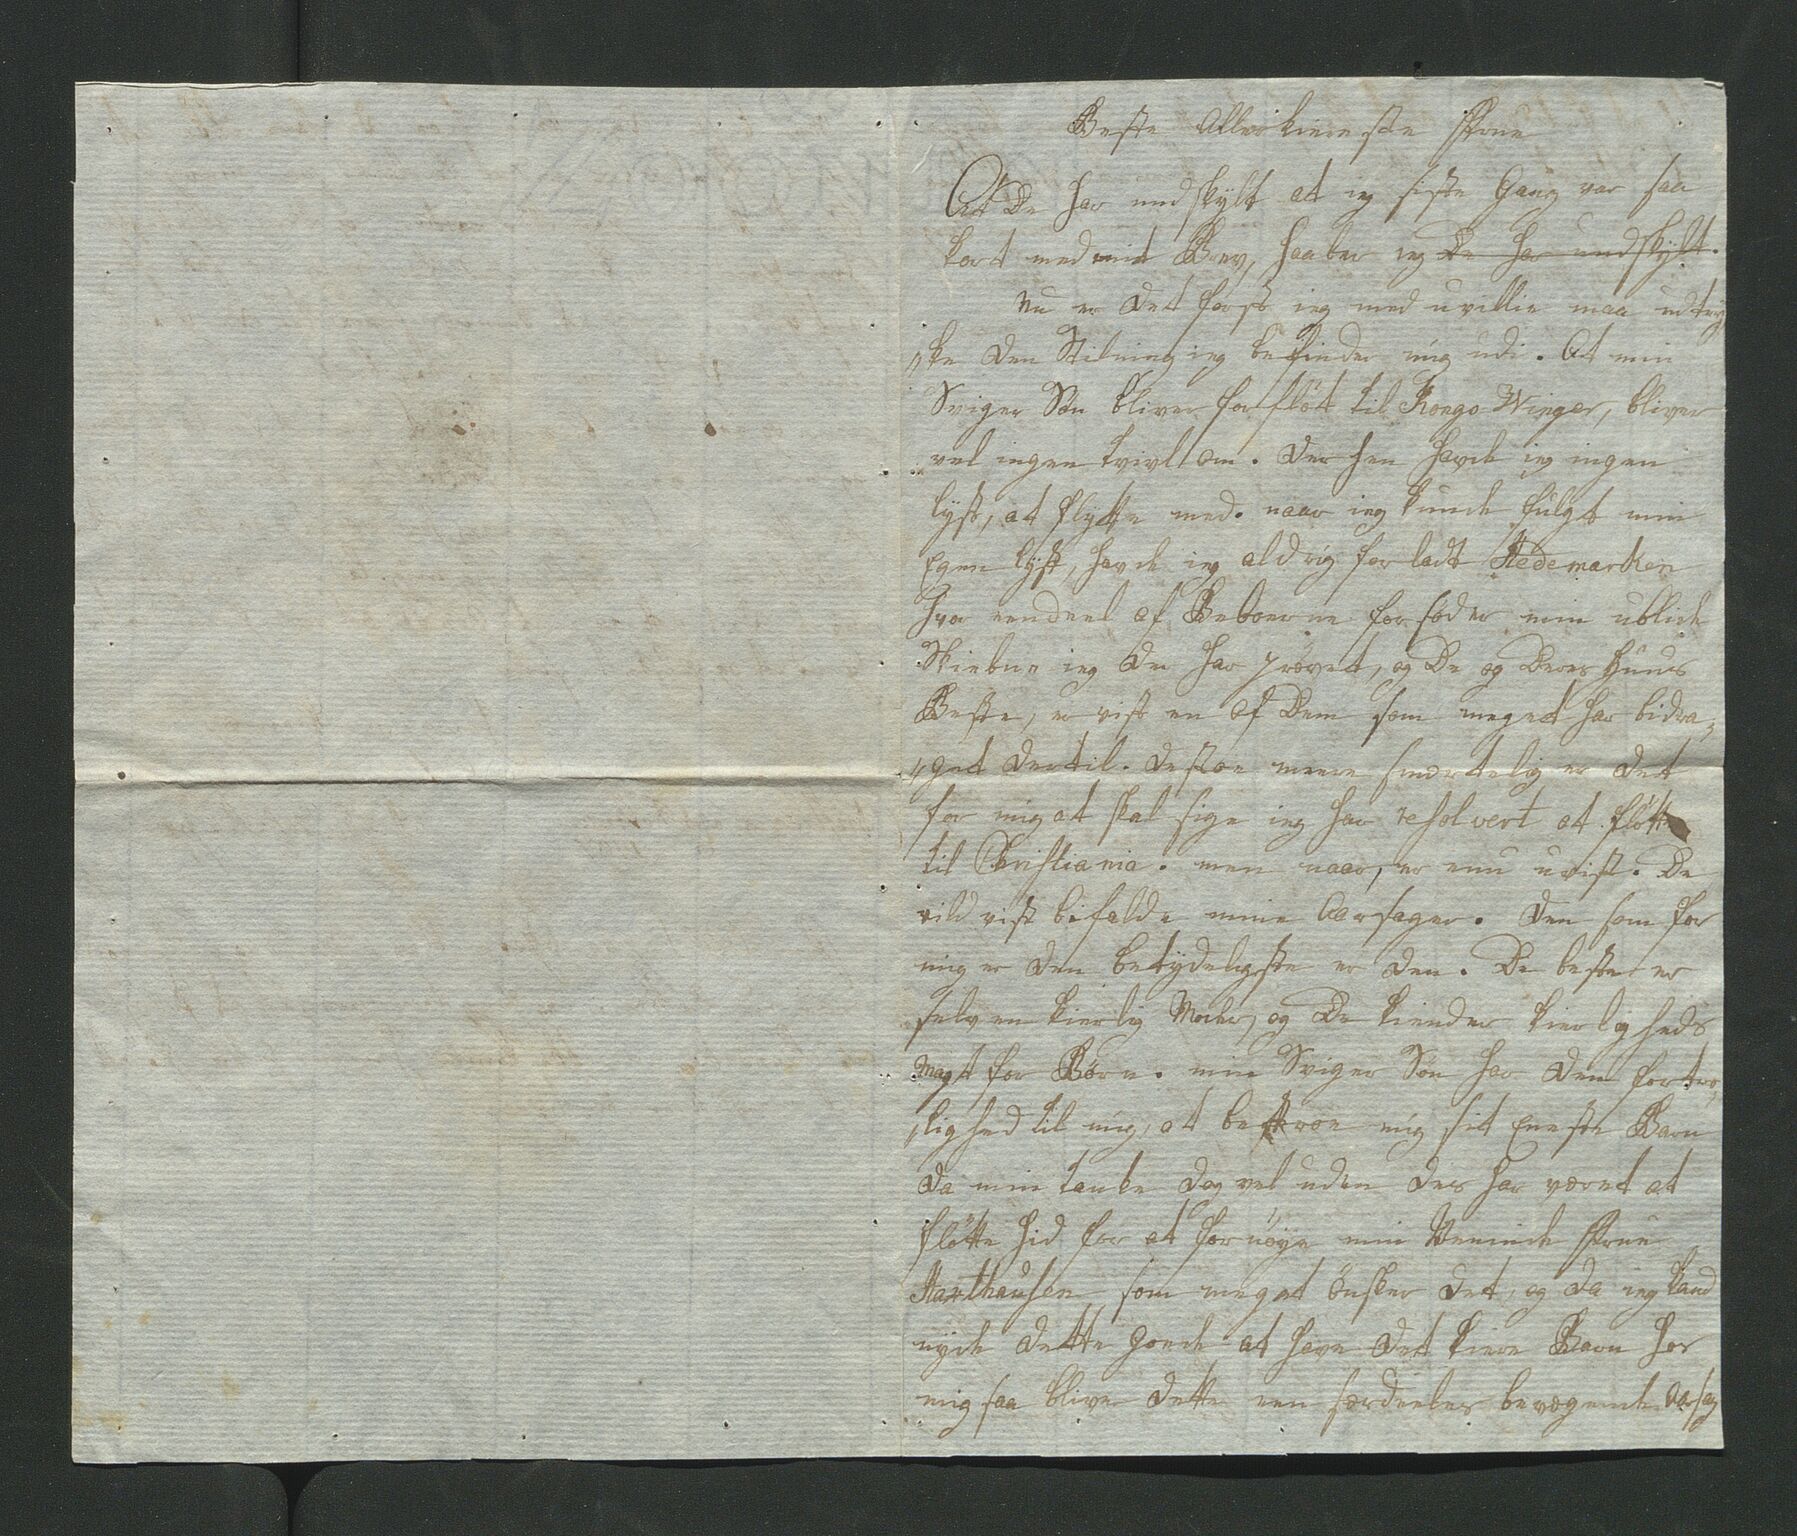 Beste Allerkiereste Frue
At De har undskylt at ieg siste Gang var saa
kort med mit Brev, haaber ieg De har undskylt.
Nu er det først ieg med uvillie maa udtry
„ke den Stilning ieg befinder mig udi. At min
Sviger Søn bliver forfløt til Kongs-Winger, bliver
vel ingen tvivl om. Der hen havde ieg ingen
lyst, at flytte med. naar ieg kunde fulgt min
Egen lyst, havde ieg aldrig forladt Hedemarken
hvor en deel af Beboerne forsøder min ublide
Skiebne ieg der har prøvet, og De og Deres Huus
Beste, er vist en af Dem som meget har bidra„
„get dertil. desto meere smertelig er det
for mig at skal sige ieg har resolvert at fløtte
til Christiania. men naar, er enu uvist. De
vild vist bifalde mine Aarsager. Den som for
mig er den betydeligste er den. De beste er
selv en kierlig Moder, og De kiender kierligheds
Magt for Børn. min Sviger Søn har den fortro„
„lighed til mig, at betroe mig sit Eneste Barn
da min tanke dog vel uden des har været at
fløtte hid for at fornøye min Veninde Frue
Haxthausen som meget ønsker det, og da ieg kand
nyde dette gode at have det kiere Barn hos
mig saa bliver dette een særdeeles bevægende Aarsag